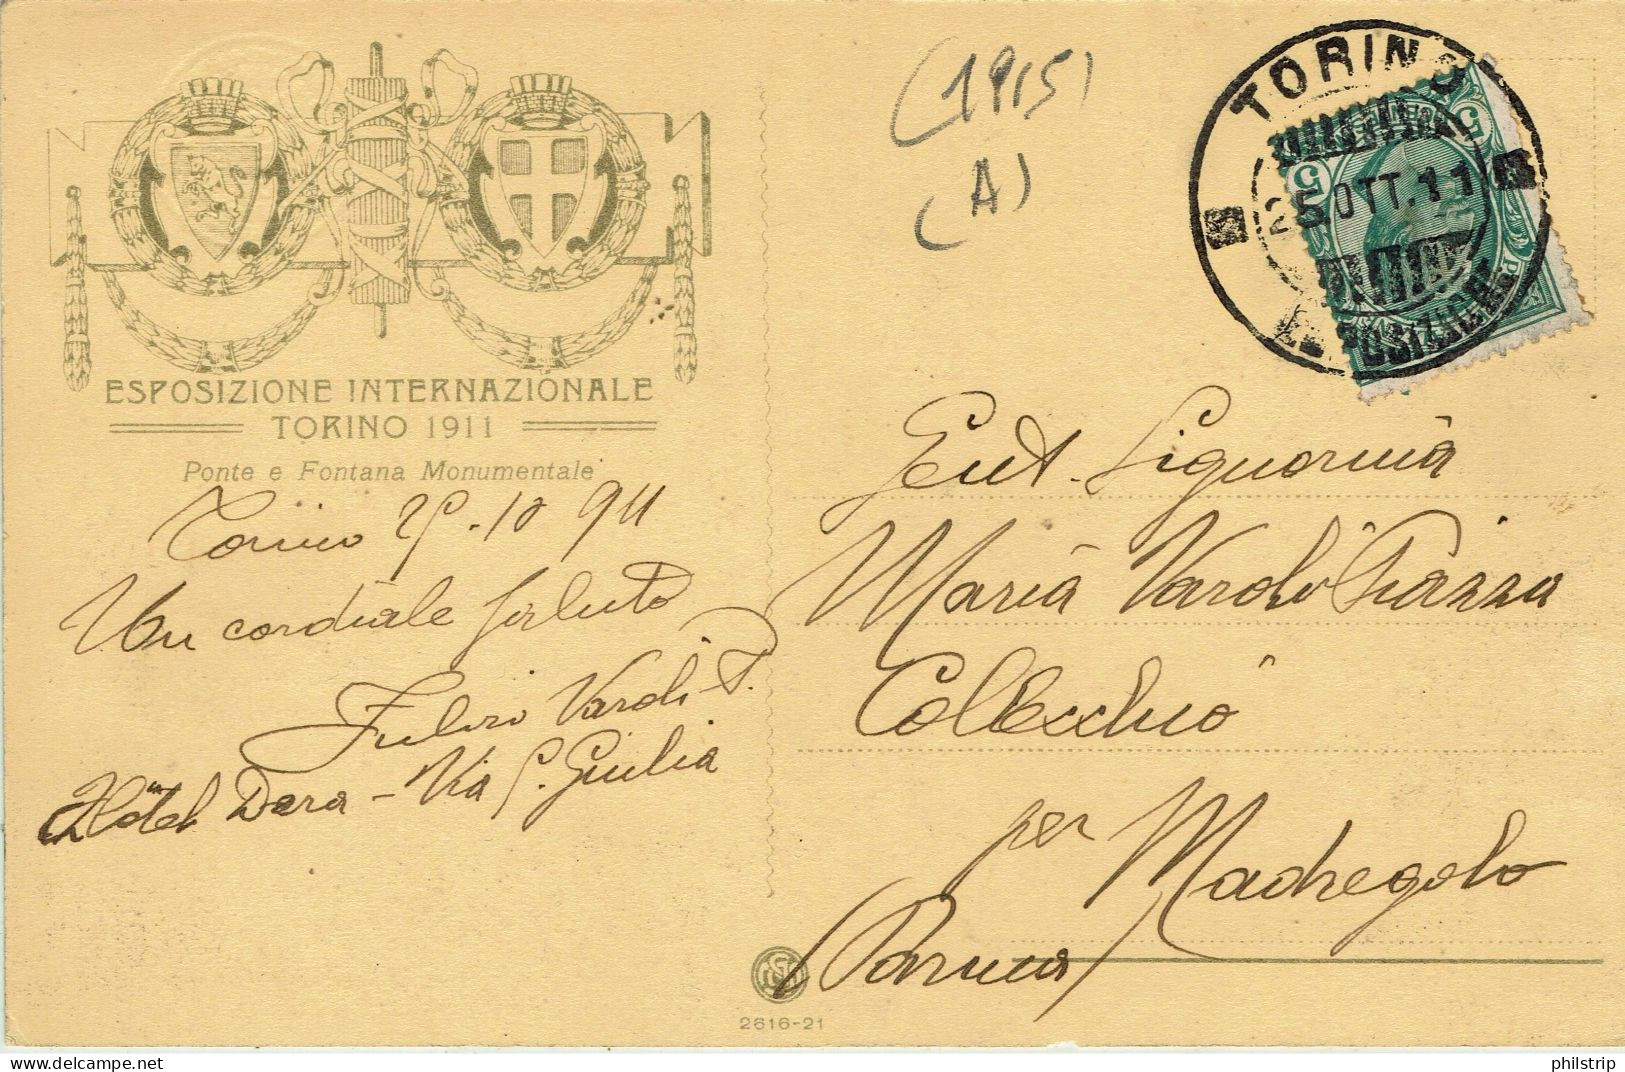 (1915)
(A)
TORINO
25 OTT. 11
ESPOSIZIONE
5 5
ESPOSIZIONE INTERNAZIONALE
TORINO 1911
Ponte e Fontana Monumentale
Torino 25-10 911
Un cordiale saluto
Fulvio Vardi-P.
Hôtel Dora - Via P. Giulia
Gent. Signorina
Maria Vardi Piazza
Collecchio
per Madregolo
(Parma)
2616-21
philstrip